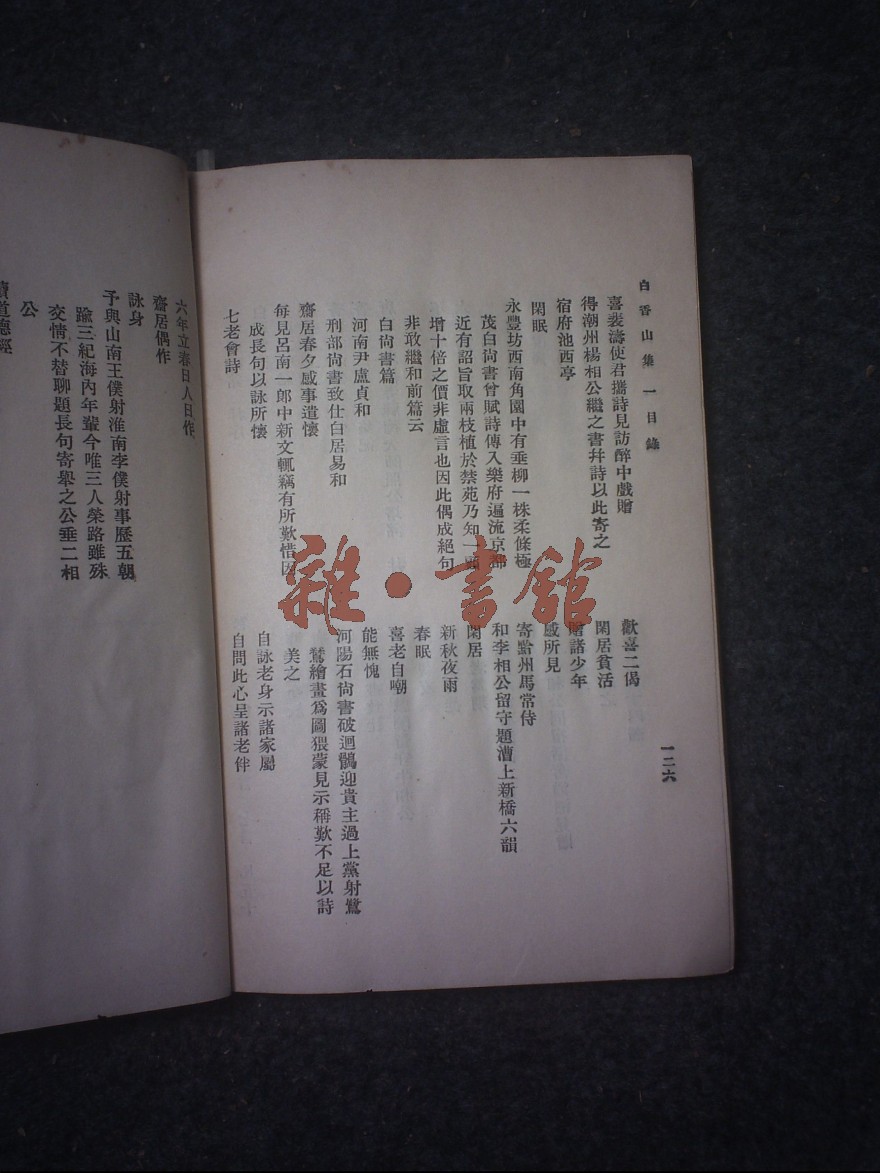 白香山集 一 目錄
一二六
喜裴濤使君攜詩見訪醉中戲贈
得潮州楊相公繼之書幷詩以此寄之
宿府池西亭
閑眠
永豐坊西南角園中有垂柳一株柔條極
茂白尙書曾賦詩傳入樂府遍流京都
近有詔旨取兩枝植於禁苑乃知一顧
增十倍之價非虛言也因此偶成絕句
非敢繼和前篇云
白尙書篇
河南尹盧貞和
刑部尙書致仕白居易和
齋居春夕感事遣懷
每見呂南一郎中新文輒竊有所歎惜因
成長句以詠所懷
七老會詩
歡喜二偈
閑居貧活
贈諸少年
感所見
寄黔州馬常侍
和李相公留守題漕上新橋六韻
閑居
新秋夜雨
春眠
喜老自嘲
能無愧
河陽石尙書破迴鶻迎貴主過上黨射鷺
鷥繪畫爲圖猥蒙見示稱歎不足以詩
美之
自詠老身示諸家屬
自問此心呈諸老伴
六年立春日人日作
齋居偶作
詠身
予與山南王僕射淮南李僕射事歷五朝
踰三紀海內年輩今唯三人榮路雖殊
交情不替聊題長句寄擧之公垂二相
公
讀道德經
雜·書館